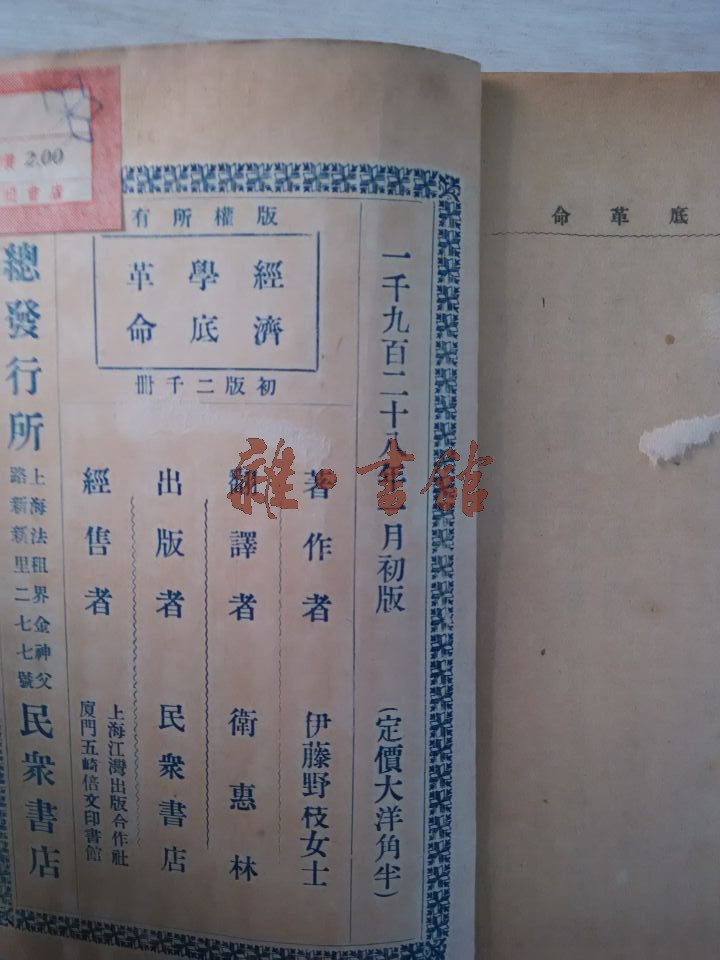 2.00
版權所有
經濟
學底
革命
初版二千冊
一千九百二十八年一月初版
(定價大洋角半)
著作者 伊藤野枝女士
翻譯者 衛惠林
出版者 民衆書店
經售者
上海江灣出版合作社
廈門五崎倍文印書館
總發行所
上海法租界金神父
路新新里二七七號
民衆書店
底革命
雜·書館